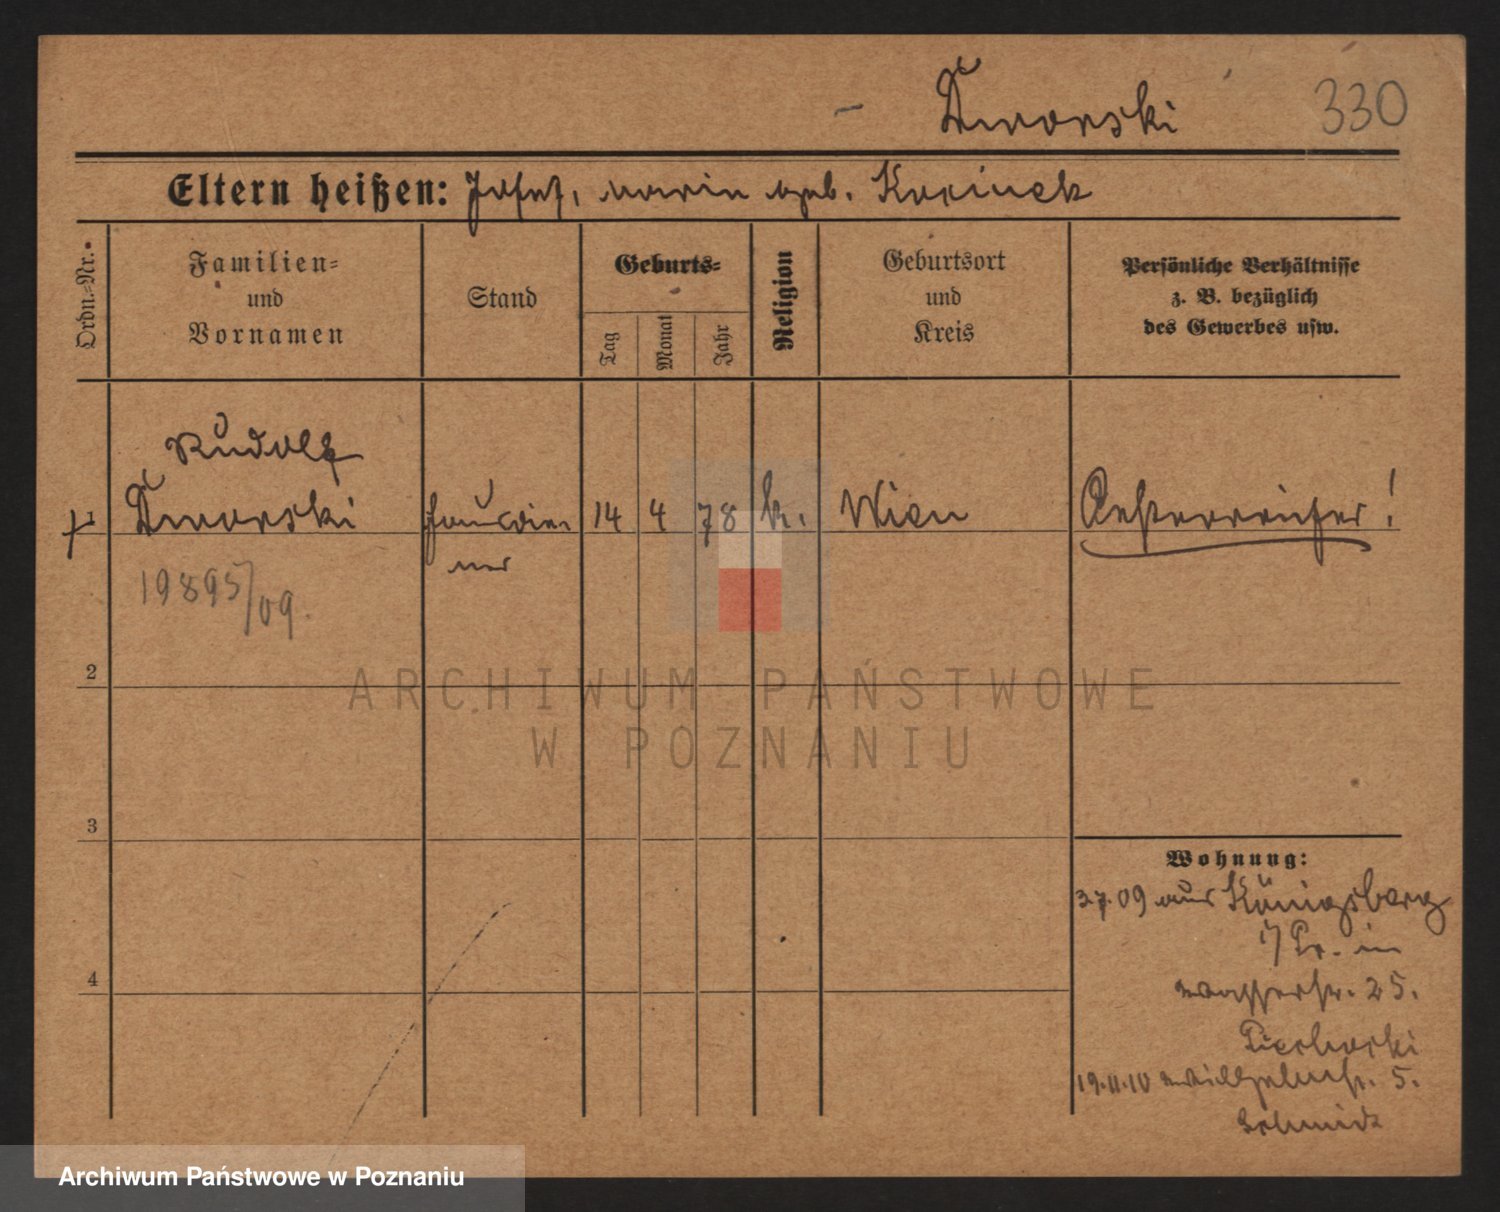 Dworski
330
Eltern heißen: Josef, Maria geb. Korinek
Ordn.-Nr.
Familien-
und
Vornamen
Stand
Geburts-
Tag
Monat
Jahr
Religion
Geburtsort
und
Kreis
Persönliche Verhältnisse
z. B. bezüglich
des Gewerbes usw.
1
Rudolf
Dworski
Hausdie
ner
14
4
78
k.
Wien
Oesterreicher!
19895/09.
2
3
4
Wohnung:
3.7.09 aus Königsberg
i/Pr. in
Wasserstr. 25.
19.11.10 Wilhelmstr. 5.
Schmidt
ARCHIWUM PAŃSTWOWE
W POZNANIU
Archiwum Państwowe w Poznaniu